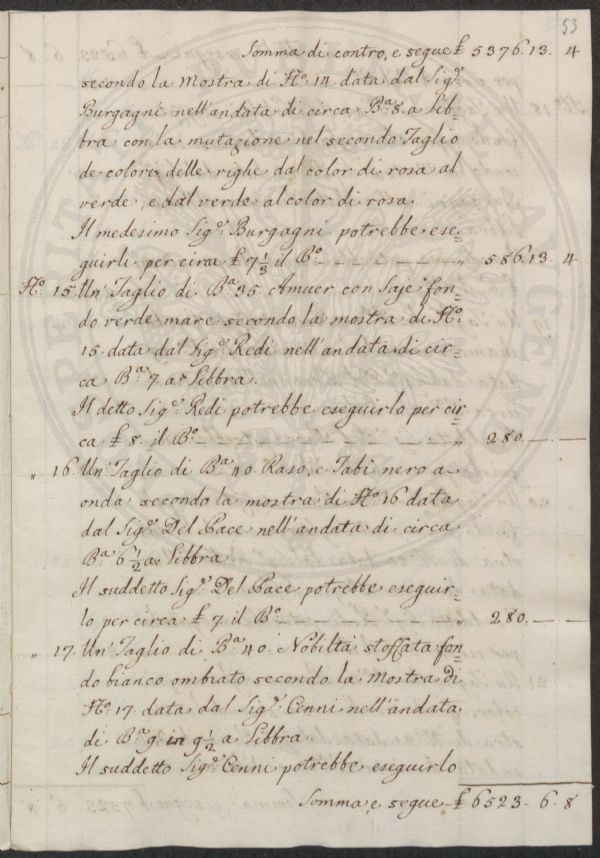 53
Somma di contro, e segue £ 5376. 13. 4
secondo la Mostra di No. 14 data dal Sigr.
Burgagni nell'andata di circa Ba. 8. a Lib=
bra con la mutazione nel secondo Taglio
de colori delle righe dal color di rosa al
verde, e dal verde al color di rosa.
Il medesimo Sigr. Burgagni potrebbe ese=
guirli per circa £ 7 1/3 il Bo. — — — — — " 586. 13. 4
No. 15. Un' Taglio di Ba. 35. Amuer con Saje fon=
do verde mare secondo la mostra di No.
15. data dal Sigr. Redi nell'andata di cir=
ca Ba. 7. a Libbra.
Il detto Sigr. Redi potrebbe eseguirlo per cir=
ca £ 8. il Bo. — — — — — — — " 280. — —
" 16. Un' Taglio di Ba. 40. Raso, e Tabi nero a
onda secondo la mostra di No. 16 data
dal Sigr. Del Pace nell'andata di circa
Ba. 6 1/2 a Libbra.
Il suddetto Sigr. Del Pace potrebbe eseguir=
lo per circa £ 7. il Bo. — — — — — " 280. — —
" 17. Un' Taglio di Ba. 40. Nobiltà stoffata fon=
do bianco ombiato secondo la Mostra di
No. 17. data dal Sigr. Cenni nell'andata
di Ba. 9. in 9 1/2 a Libbra.
Il suddetto Sigr. Cenni potrebbe eseguirlo
Somma, e segue £ 6523. 6. 8